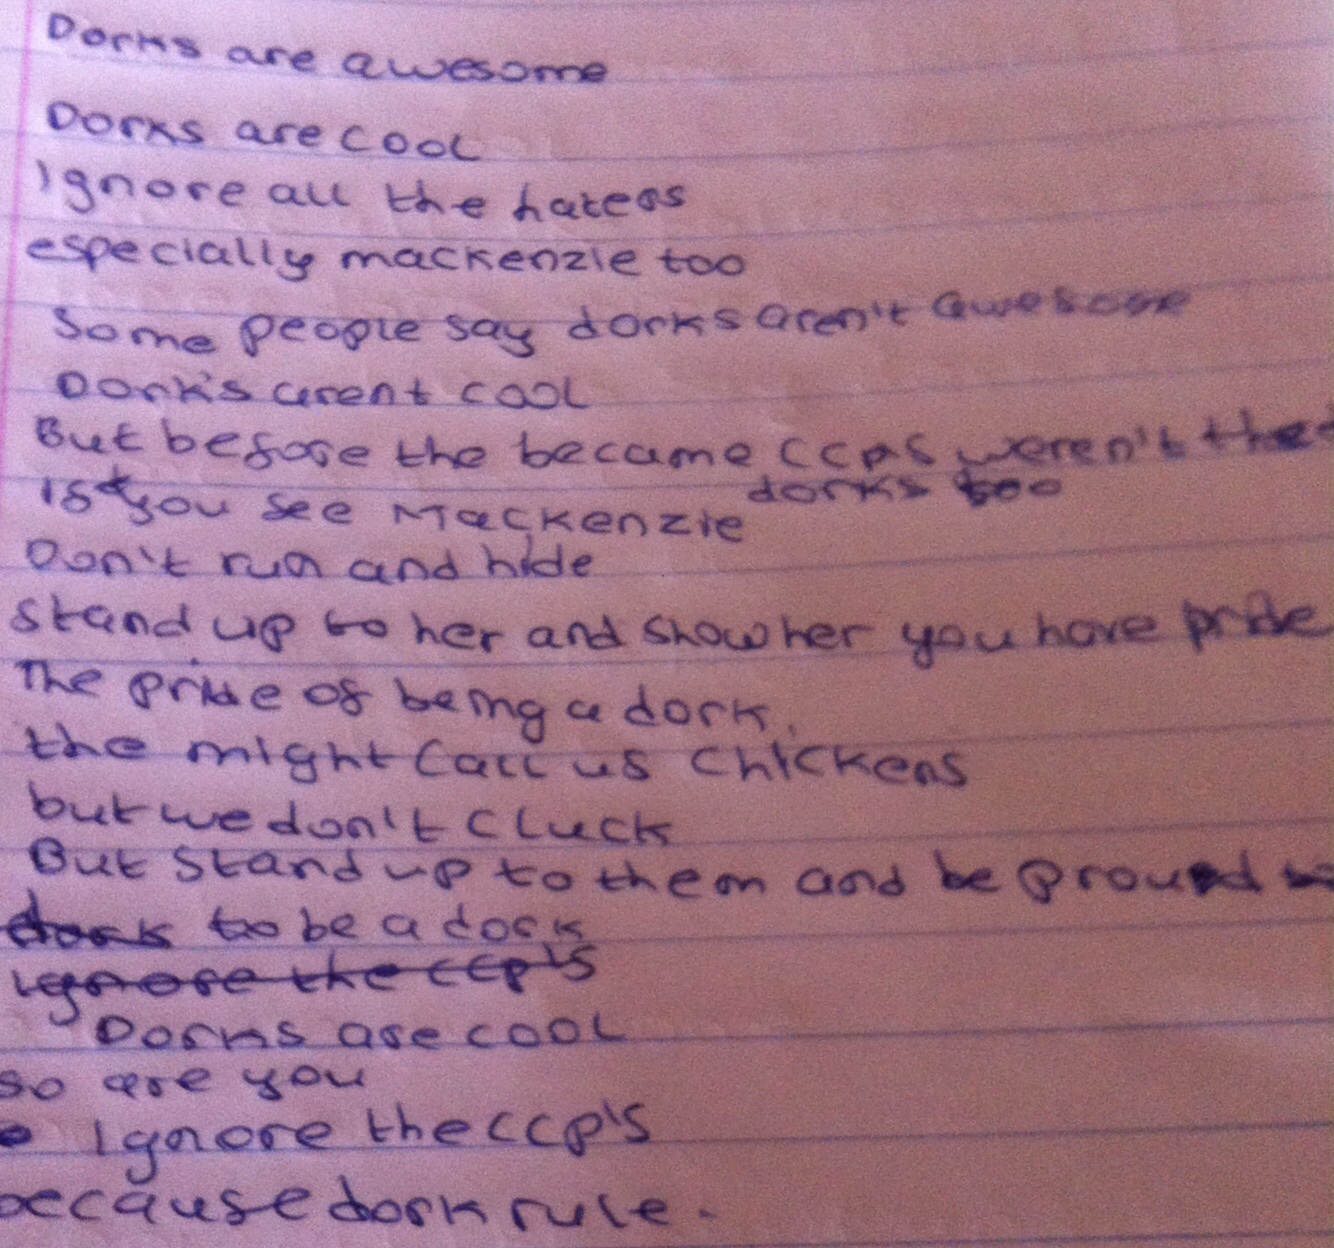 Dorks are awesome
Dorks are cool
Ignore all the haters
especially mackenzie too
Some people say dorks aren't awesome
Dork's arent cool
But before the became CCPS weren't the
dorks too
If you see Mackenzie
Don't run and hide
stand up to her and show her you have pride
The pride of being a dork.
the might call us chickens
but we don't cluck
But stand up to them and be proud
dork to be a dork
ignore the CCP's
Dorks are cool
so are you
Ignore the CCP's
because dork rule.